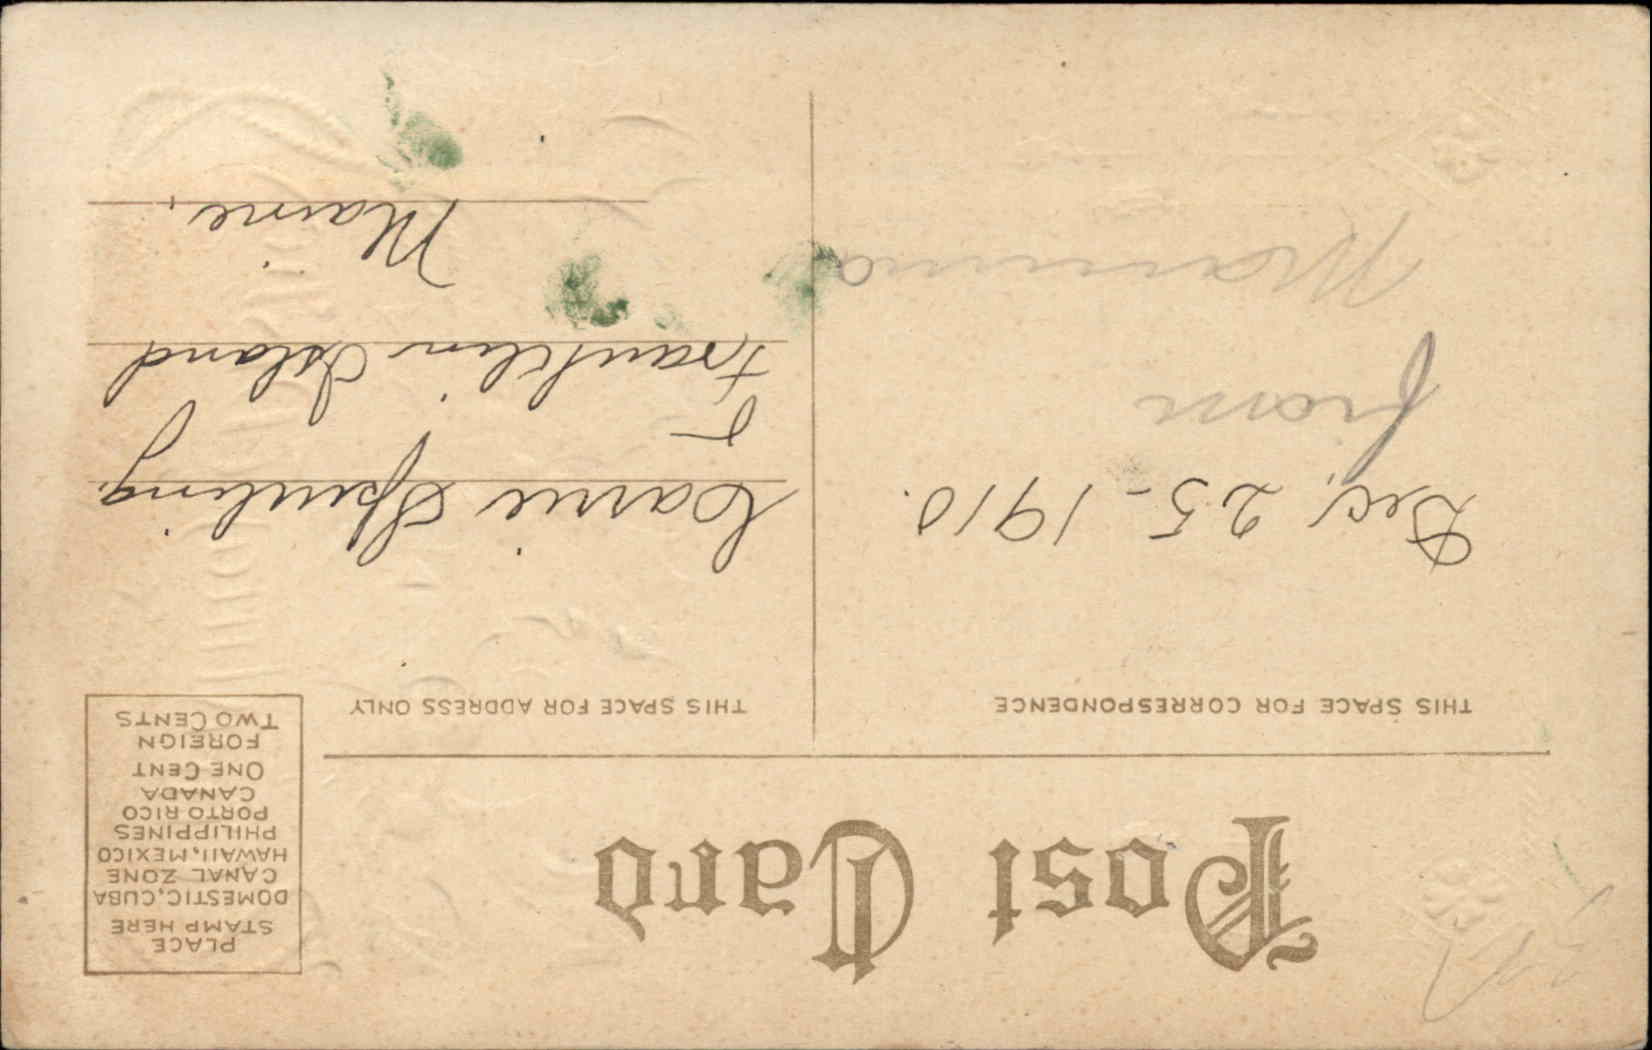 Post Card
PLACE
STAMP HERE
DOMESTIC, CUBA
CANAL ZONE
HAWAII, MEXICO
PHILIPPINES
PORTO RICO
CANADA
ONE CENT
FOREIGN
TWO CENTS
THIS SPACE FOR CORRESPONDENCE
Dec, 25-1910.
from
Mamma
THIS SPACE FOR ADDRESS ONLY
Carrie Spurling.
Franklin Island
Maine,